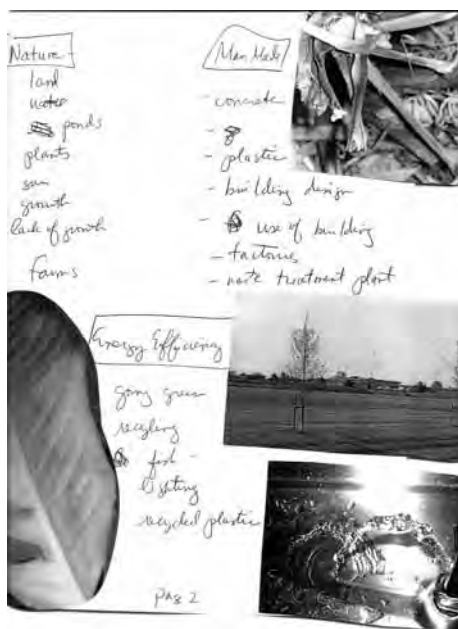 Nature
land
water
ponds
plants
sun
growth
lack of growth
farms
Man Made
- concrete
-
- plastic
- building design
- use of building
- factories
- treatment plant
Energy Efficiency
going green
recycling
lighting
recycled plastic
pag 2